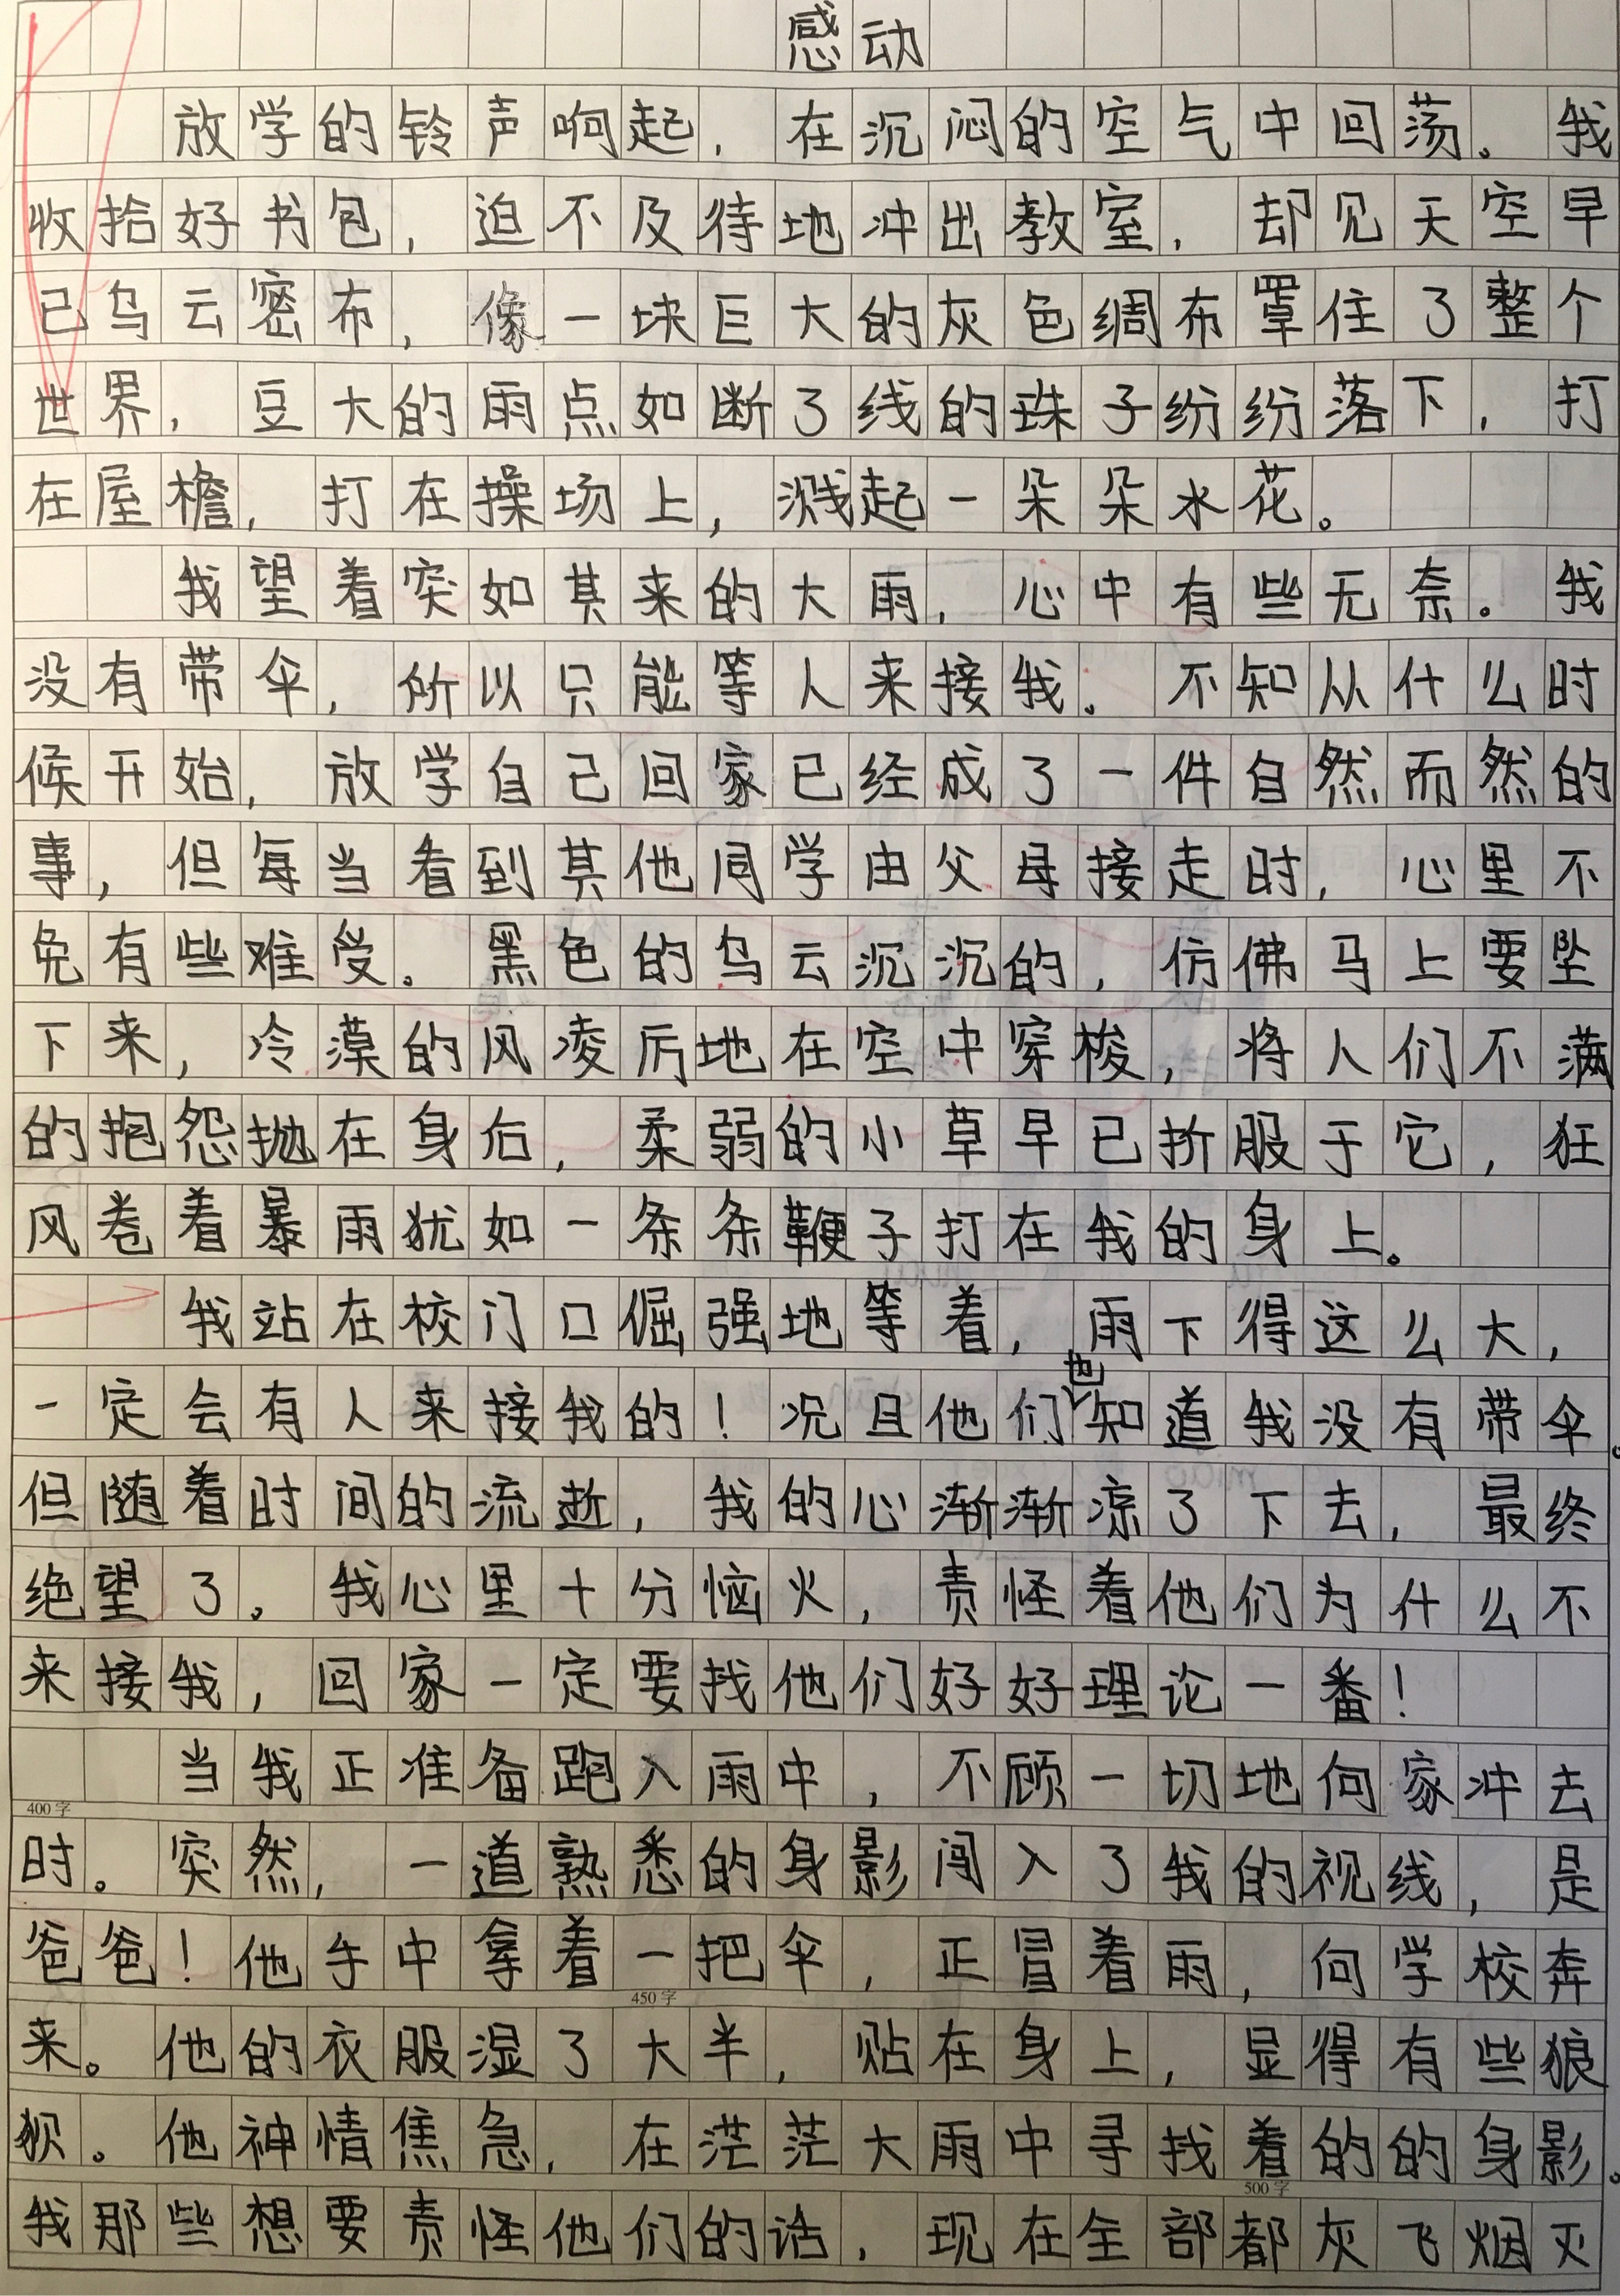 感动
放学的铃声响起，在沉闷的空气中回荡。我
收拾好书包，迫不及待地冲出教室，却见天空早
已乌云密布，像一块巨大的灰色绸布罩住了整个
世界，豆大的雨点如断了线的珠子纷纷落下，打
在屋檐，打在操场上，溅起一朵朵水花。
我望着突如其来的大雨，心中有些无奈。我
没有带伞，所以只能等人来接我。不知从什么时
候开始，放学自己回家已经成了一件自然而然的
事，但每当看到其他同学由父母接走时，心里不
免有些难受。黑色的乌云沉沉的，仿佛马上要坠
下来，冷漠的风凌厉地在空中穿梭，将人们不满
的抱怨抛在身后，柔弱的小草早已折服于它，狂
风卷着暴雨犹如一条条鞭子打在我的身上。
我站在校门口倔强地等着，雨下得这么大，
一定会有人来接我的！况且他们也知道我没有带伞。
但随着时间的流逝，我的心渐渐凉了下去，最终
绝望了。我心里十分恼火，责怪着他们为什么不
来接我，回家一定要找他们好好理论一番！
当我正准备跑入雨中，不顾一切地向家冲去
400字
时。突然，一道熟悉的身影闯入了我的视线，是
爸爸！他手中拿着一把伞，正冒着雨，向学校奔
450字
来。他的衣服湿了大半，贴在身上，显得有些狼
狈。他神情焦急，在茫茫大雨中寻找着的的身影。
500字
我那些想要责怪他们的话，现在全部都灰飞烟灭